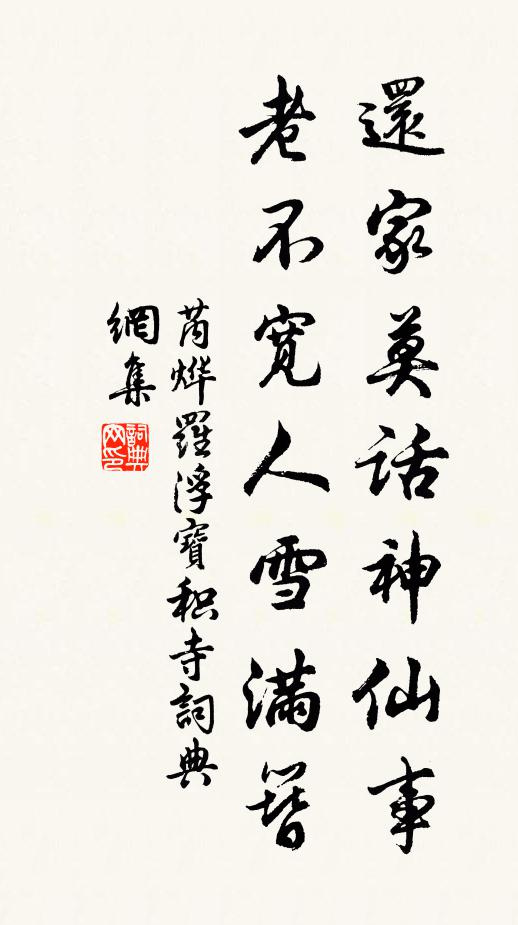 還家莫話神仙事
老不寬人雪滿簪
芮烨羅浮寶积寺詞典
網集
詞典
网印